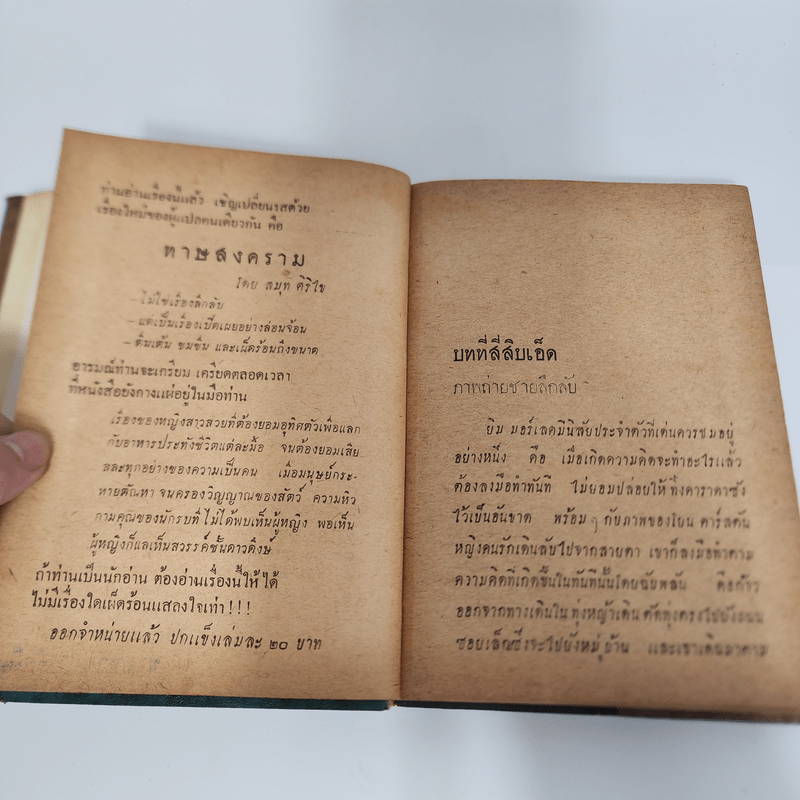 ท่านอ่านเรื่องนี้แล้ว เชิญเปลี่ยนรสด้วย
เรื่องใหม่ของผู้แปลคนเดียวกัน คือ
ทาษสงคราม
โดย สมุท ศิริไข
– ไม่ใช่เรื่องลึกลับ
– แต่เป็นเรื่องเปิดเผยอย่างล่อนจ้อน
– ตื่นเต้น ขมขื่น และเผ็ดร้อนถึงขนาด
อารมณ์ท่านจะเกรียม เครียดตลอดเวลา
ที่หนังสือยังกางแผ่อยู่ในมือท่าน
เรื่องของหญิงสาวสวยที่ต้องยอมอุทิศตัวเพื่อแลก
กับอาหารประทังชีวิตแต่ละมื้อ จนต้องยอมเสีย
สละทุกอย่างของความเป็นคน เมื่อมนุษย์กระ-
หายตัณหา จนครองวิญญาณของสัตว์ ความหิว
กามคุณของนักรบที่ ไม่ได้พบเห็นผู้หญิง พอเห็น
ผู้หญิงก็แลเห็นสวรรค์ชั้นดาวดึงษ์
ถ้าท่านเป็นนักอ่าน ต้องอ่านเรื่องนี้ให้ได้
ไม่มีเรื่องใดเผ็ดร้อนแสลงใจเท่า!!!
ออกจำหน่ายแล้ว ปกแข็งเล่มละ ๒๐ บาท
บทที่สี่สิบเอ็ด
ภาพถ่ายชายลึกลับ
ยิม มอร์เลคมีนิสัยประจำตัวที่เด่นควรชมอยู่
อย่างหนึ่ง คือ เมื่อเกิดความคิดจะทำอะไรแล้ว
ต้องลงมือทำทันที ไม่ยอมปล่อยให้ ทิ้งคาราคาซัง
ไว้เป็นอันขาด พร้อม ๆ กับภาพของโยน คาร์สตัน
หญิงคนรักเดินลับไปจากสายตา เขาก็ลงมือทำตาม
ความคิดที่เกิดขึ้นในทันทีนั้นโดยฉับพลัน คือก้าว
ออกจากทางเดินใน ทุ่งหญ้าเดิน ตัดทุ่งตรงไปยังถนน
ซอยเล็กซึ่งจะไปยังหมู่บ้าน และเขาเดินมาตาม